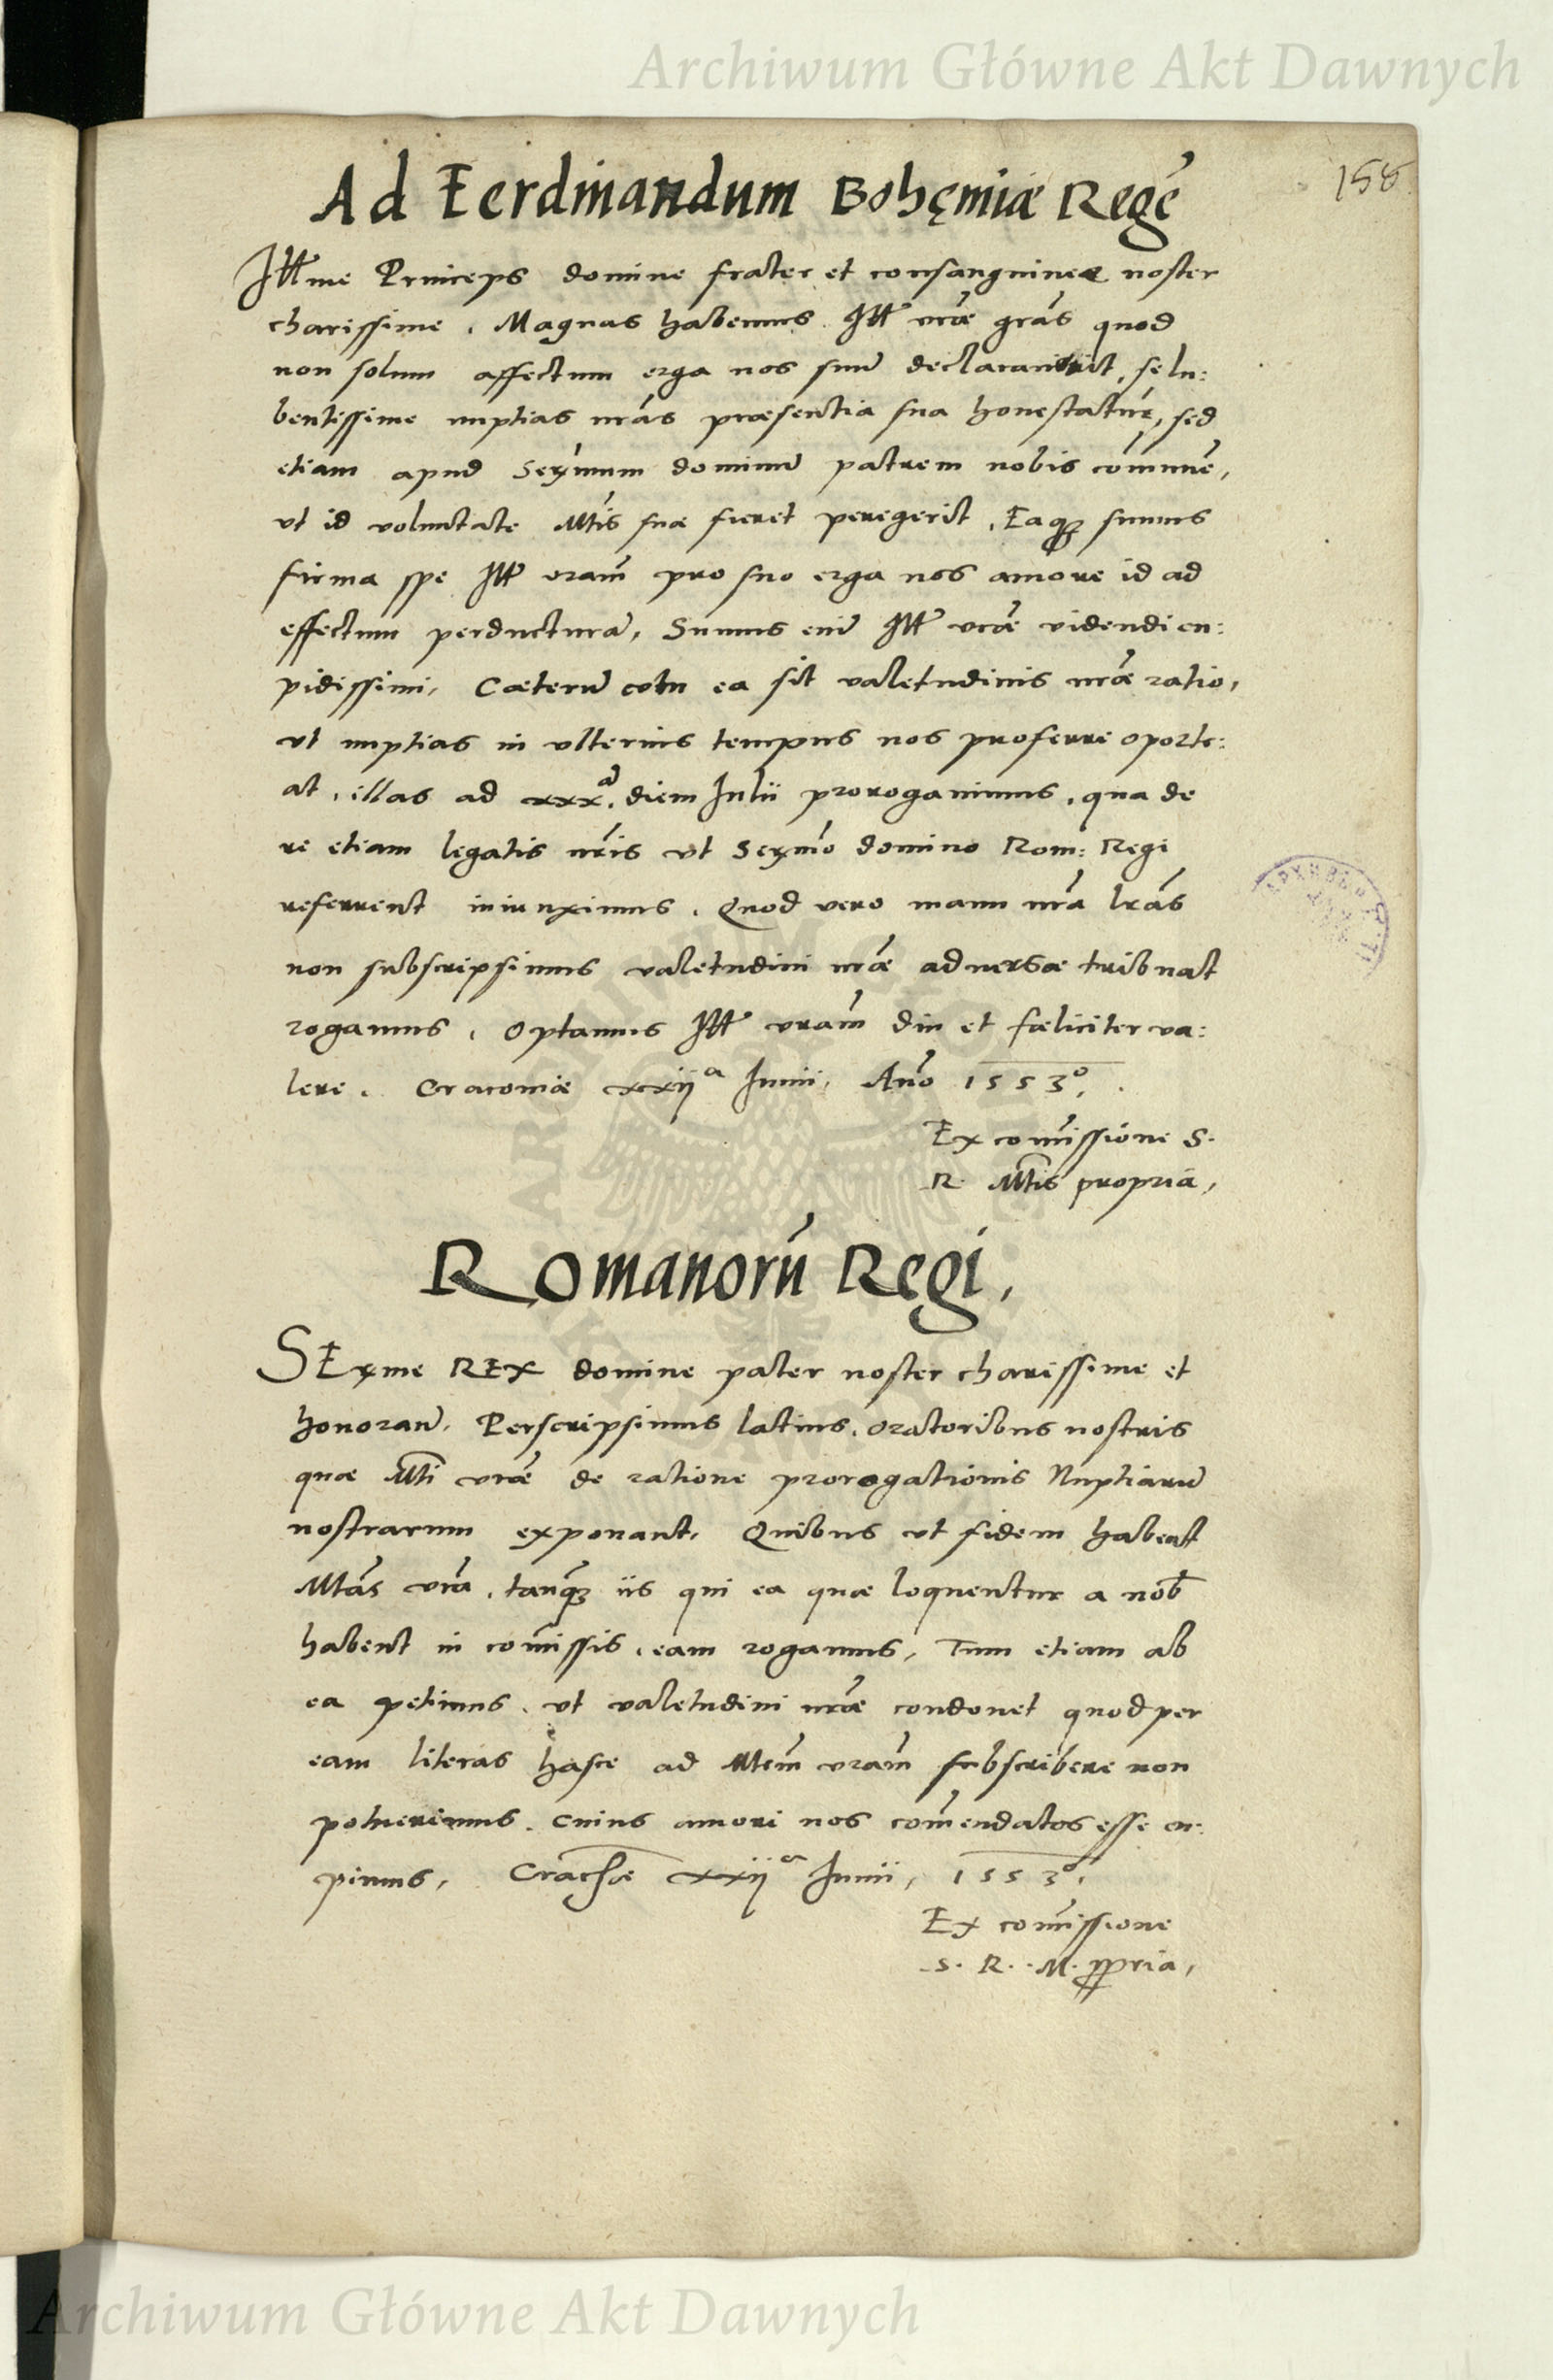 Archiwum Główne Akt Dawnych
158
Ad Ferdinandum Bohęmiæ Regē
Illme Princeps domine frater et consanguinee noster
charissime. Magnas habemus Ill vræ grās quod
non solum affectum erga nos suū declarauerit, se lu:
bentissime nuptias nrās præsentia sua honestaturū, sed
etiam apud Serymum dominū patrem nobis commune,
vt id voluntate Mtis suæ fieret peregerit. Eaq3 sumus
firma spe Ill vram pro suo erga nos amore id ad
effectum perducturā, Sumus enī Ill vræ videndi cu:
pidissimi, Cæterū cum ea sit valetudinis nræ ratio,
vt nuptias in vlterius tempus nos proferre oporte:
at, illas ad xxx.ā diem Iulii prorogauimus, qua de
re etiam legatis nris vt Serymo domino Rom: Regi
referrent iniunximus. Quod vero manu nrā lrās
non subscripsimus valetudini nræ aduersæ tribuat
rogamus. Optamus Ill vram diu et fæliciter va:
lere. Cracouiæ xxij a Iunii, Anō 1553o.
Ex comissione S.
R. Mtis propria,
Romanorū Regi,
SEryme REX domine pater noster charissime et
honoran̄. Perscripsimus latius oratoribus nostris
quæ Mti vræ de ratione prorogationis Nuptiarū
nostrarum exponant, Quibus vt fidem habeat
Mtās vrā, tanq3 iis qui ea quæ loquentur a nob
habent in comissis, eam rogamus, Tum etiam ab
ea petimus, vt valetudini nræ condonet quod per
eam literas hasce ad Mtem vram subscribere non
potuerimus. Cuius amori nos comendatos esse cu:
pimus, Cracoæ xxij a Iunii, 1553o,
Ex comissione
S. R. M. ppria,
Archiwum Główne Akt Dawnych